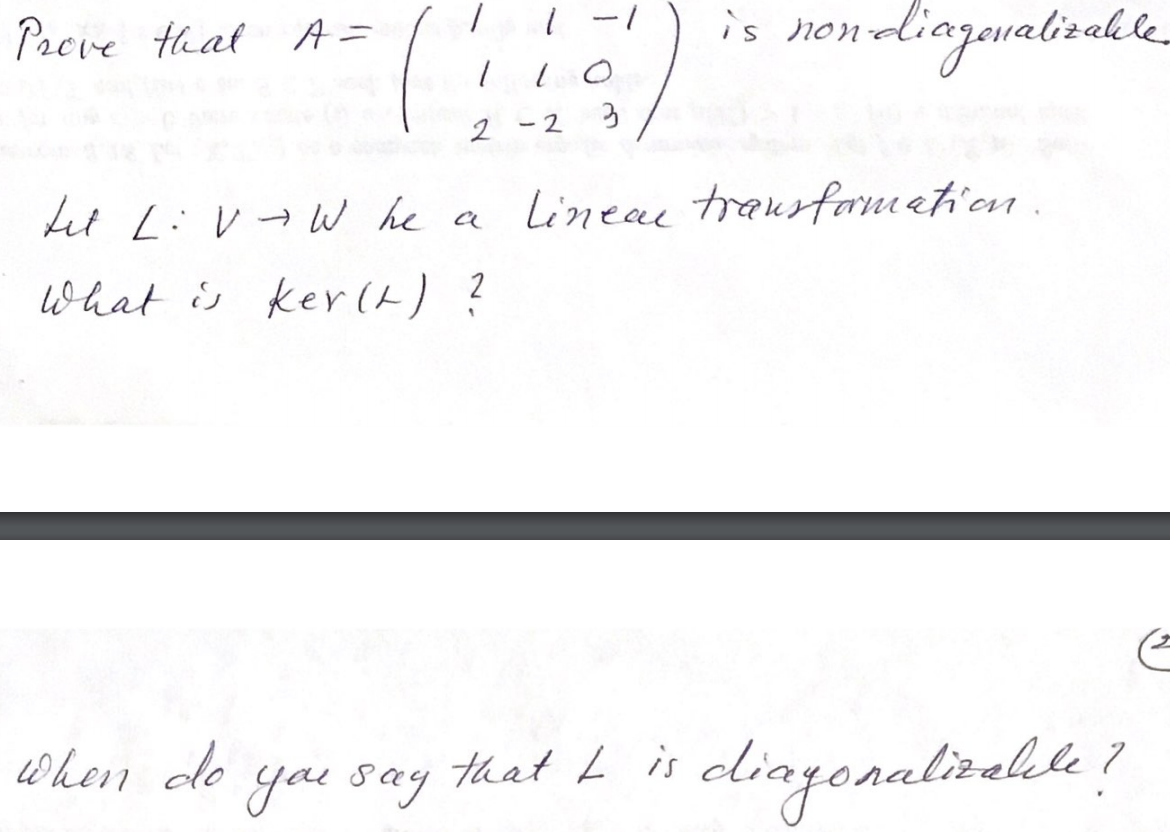 Prove that A = ( 1 1 -1 is non-diagonalizable.
1 1 0
2 -2 3 )
Let L: V → W be a linear transformation.
What is Ker(L) ?
(2
When do you say that L is diagonalizable?